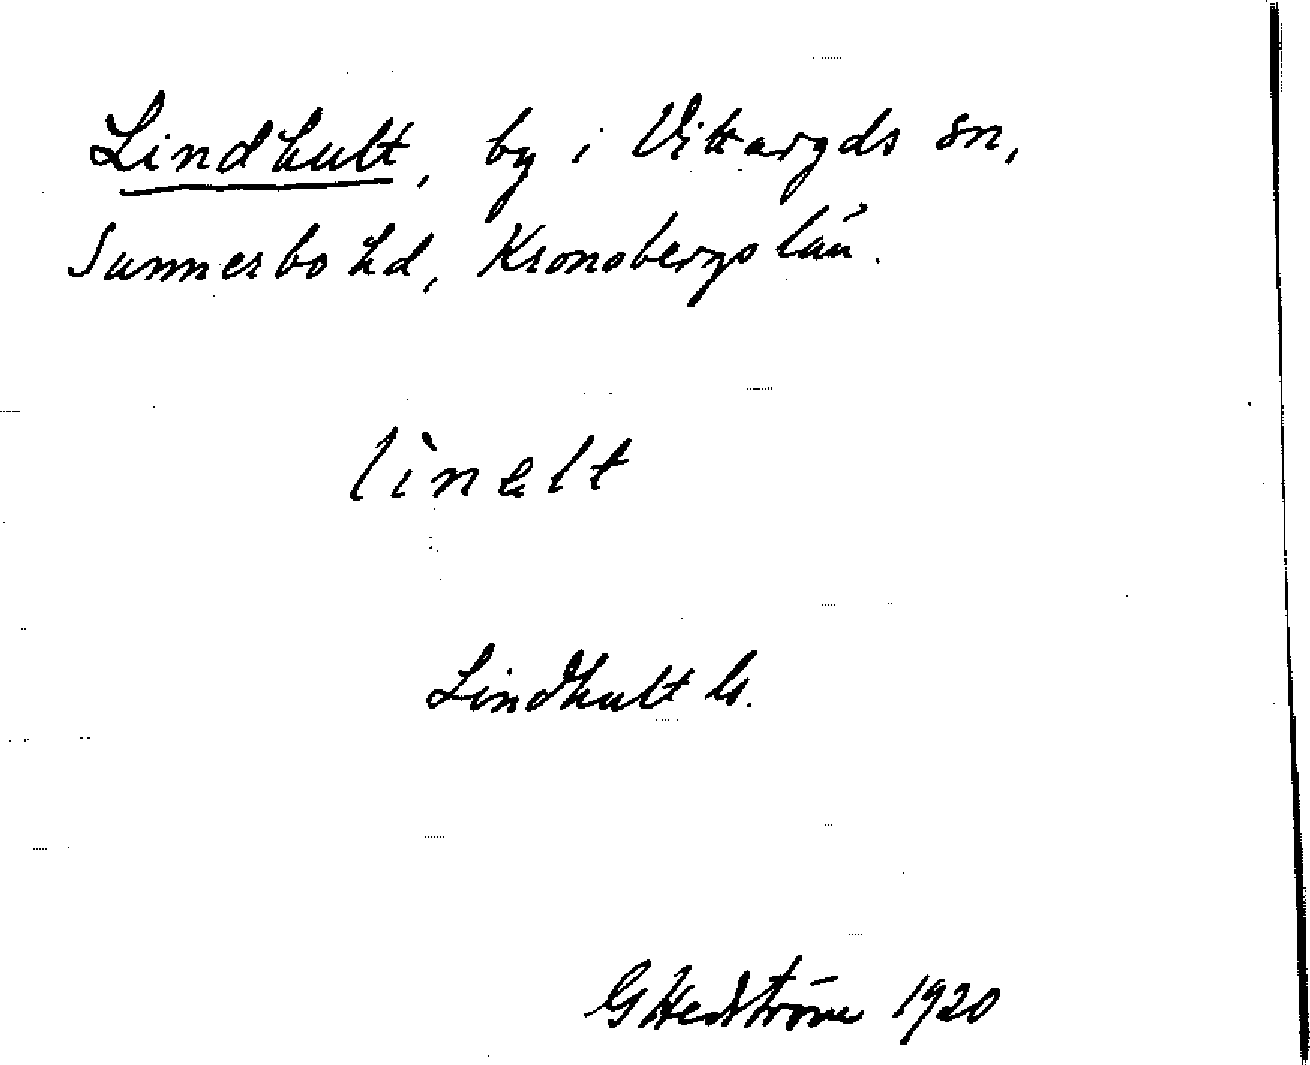 Lindhult, by i Vittaryds sn,
Sunnerbo hd, Kronobergs län.
lìnelt
Lindhult
G Hedström 1920